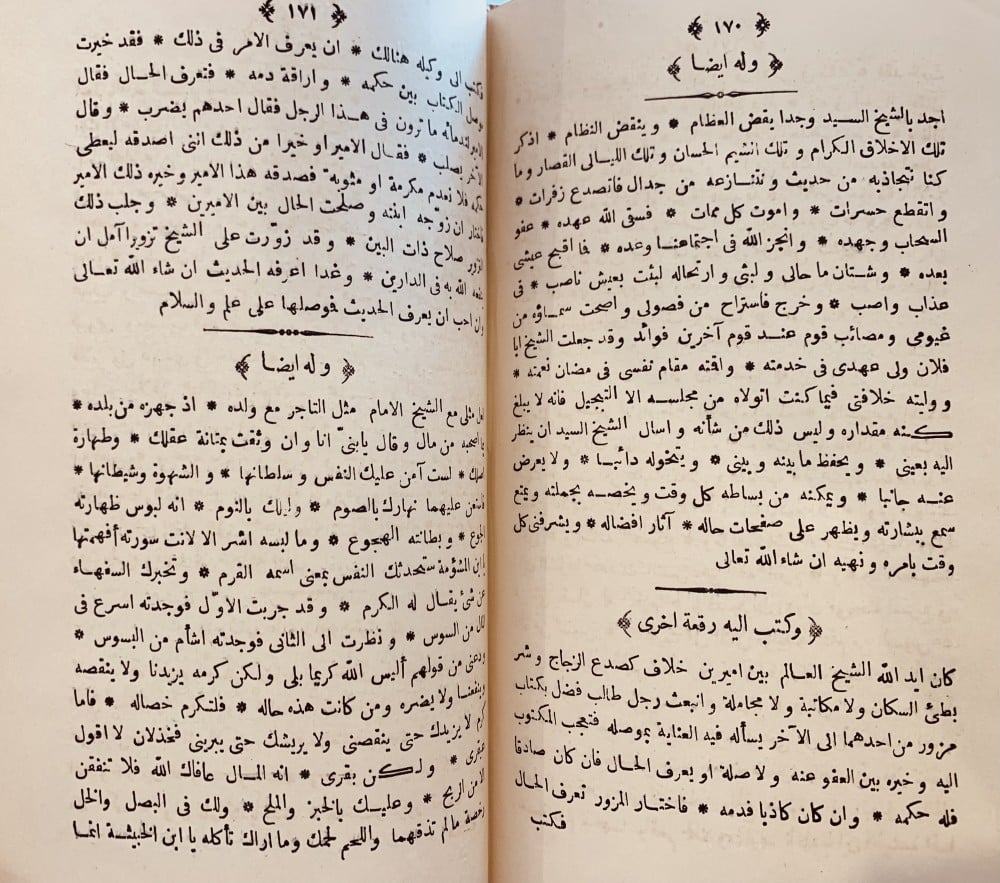 ١٧٠
وله ايضا
اجد بالشيخ السيد وجدا يفض العظام * وينقض النظام * اذكر
تلك الاخلاق الكرام وتلك الشيم الحسان وتلك الليالى القصار وما
كنا نتجاذبه من حديث ونتنازعه من جدال فاتصدع زفرات *
واتقطع حسرات * واموت كل ممات * فسقى الله عهده * عفو
السحاب وجهده * وانجز الله فى اجتماعنا وعده * فا اقبح عيشى
بعده * وشتان ما حالى ولبثى وارتحاله لبثت بعيش ناصب * فى
عذاب واصب * وخرج فاستراح من فصولى واصحت سماؤه من
غيومى ومصائب قوم عند قوم آخرين فوائد وقد جعلت الشيخ ابا
فلان ولى عهدى فى خدمته * واقته مقام نفسى فى مضان نعمته *
ووليته خلافتى فيما كنت اتولاه من مجلسه الا التبجيل فانه لا يبلغ
كنه مقداره وليس ذلك من شأنه واسال الشيخ السيد ان ينظر
اليه بعينى * ويحفظ ما بينه وبينى * ويتخوله دائبا * ولا يعرض
عنه جانبا * ويمكنه من بساطه كل وقت ويخصه بجملته ويمتع
سمع ببشارته ويظهر على صفحات حاله * آثار افضاله * ويشرفنى كل
وقت بامره ونهيه ان شاء الله تعالى
وكتب اليه رقعة اخرى
كان ايد الله الشيخ العالم بين اميرين خلاف كصدع الزجاج وشر
بطئ السكان ولا مكاتبة ولا مجاملة وانبعث رجل طالب فضل بكتاب
مزور من احدهما الى الآخر يسأله فيه العناية بموصله فتعجب المكتوب
اليه وخبره بين العفو عنه ولا صلة او يعرف الحال فان كان صادقا
فله حكمه * وان كان كاذبا فدمه * فاختار المزور تعرف الحال
فكتب
١٧١
فكتب الى وكيله هنالك * ان يعرف الامر فى ذلك * فقد خيرت
موصل الكتاب بين حكمه * واراقة دمه * فتعرف الحال فقال
الامير لندمائه ما ترون فى هذا الرجل فقال احدهم يضرب * وقال
الآخر يصلب * فقال الامير او خيرا من ذلك اننى اصدقه ليعطى
حكمه فلا نعدم مكرمة او مثوبة فصدقه هذا الامير وخيره ذلك الامير
فاختار ان زوجه ابنته وصلحت الحال بين الاميرين * وجلب ذلك
التزوير صلاح ذات البين * وقد زورت على الشيخ تزويرا آمل ان
ينفعه الله به فى الدارين * وغدا اعرفه الحديث ان شاء الله تعالى
وان احب ان يعرف الحديث فوصلها على علم والسلام
وله ايضا
لعل مثلى مع الشيخ الامام مثل التاجر مع ولده * اذ جهزه من بلده *
بما اصحبه من مال وقال يابنىّ انا وان وثقت بمتانة عقلك * وطهارة
اصلك * لست آمن عليك النفس وسلطانها * والشهوة وشيطانها *
فاستعن عليهما نهارك بالصوم * وليلك بالنوم * انه لبوس ظهارته
الجوع * وبطانته الهجوع * وما لبسه اشر الا لانت سورته أفهمتها
يا ابن المشؤمة ستحدثك النفس بمعنى اسمه القرم * وتخبرك السفهاء
عن شئ يقال له الكرم * وقد جربت الاوّل فوجدته اسرع فى
المال من السوس * ونظرت الى الثانى فوجدته اشأم من البسوس *
ودعنى من قولهم أليس الله كريما بلى ولكن كرمه يزيدنا ولا ينقصه
وينفعنا ولا يضره ومن كانت هذه حاله * فلتكرم خصاله * فاما
كرم لا يزيدك حتى ينقصنى ولا يريشك حتى يبرينى فخذلان لا اقول
عبقرى * ولكن بقرى * انه المال عافاك الله فلا تنفقن
الا من الربح * وعليك بالخبز والملح * ولك فى البصل والخل
رخصة مالم تذقهما واللحم لحمك وما اراك تأكله يا ابن الخبيثة انما